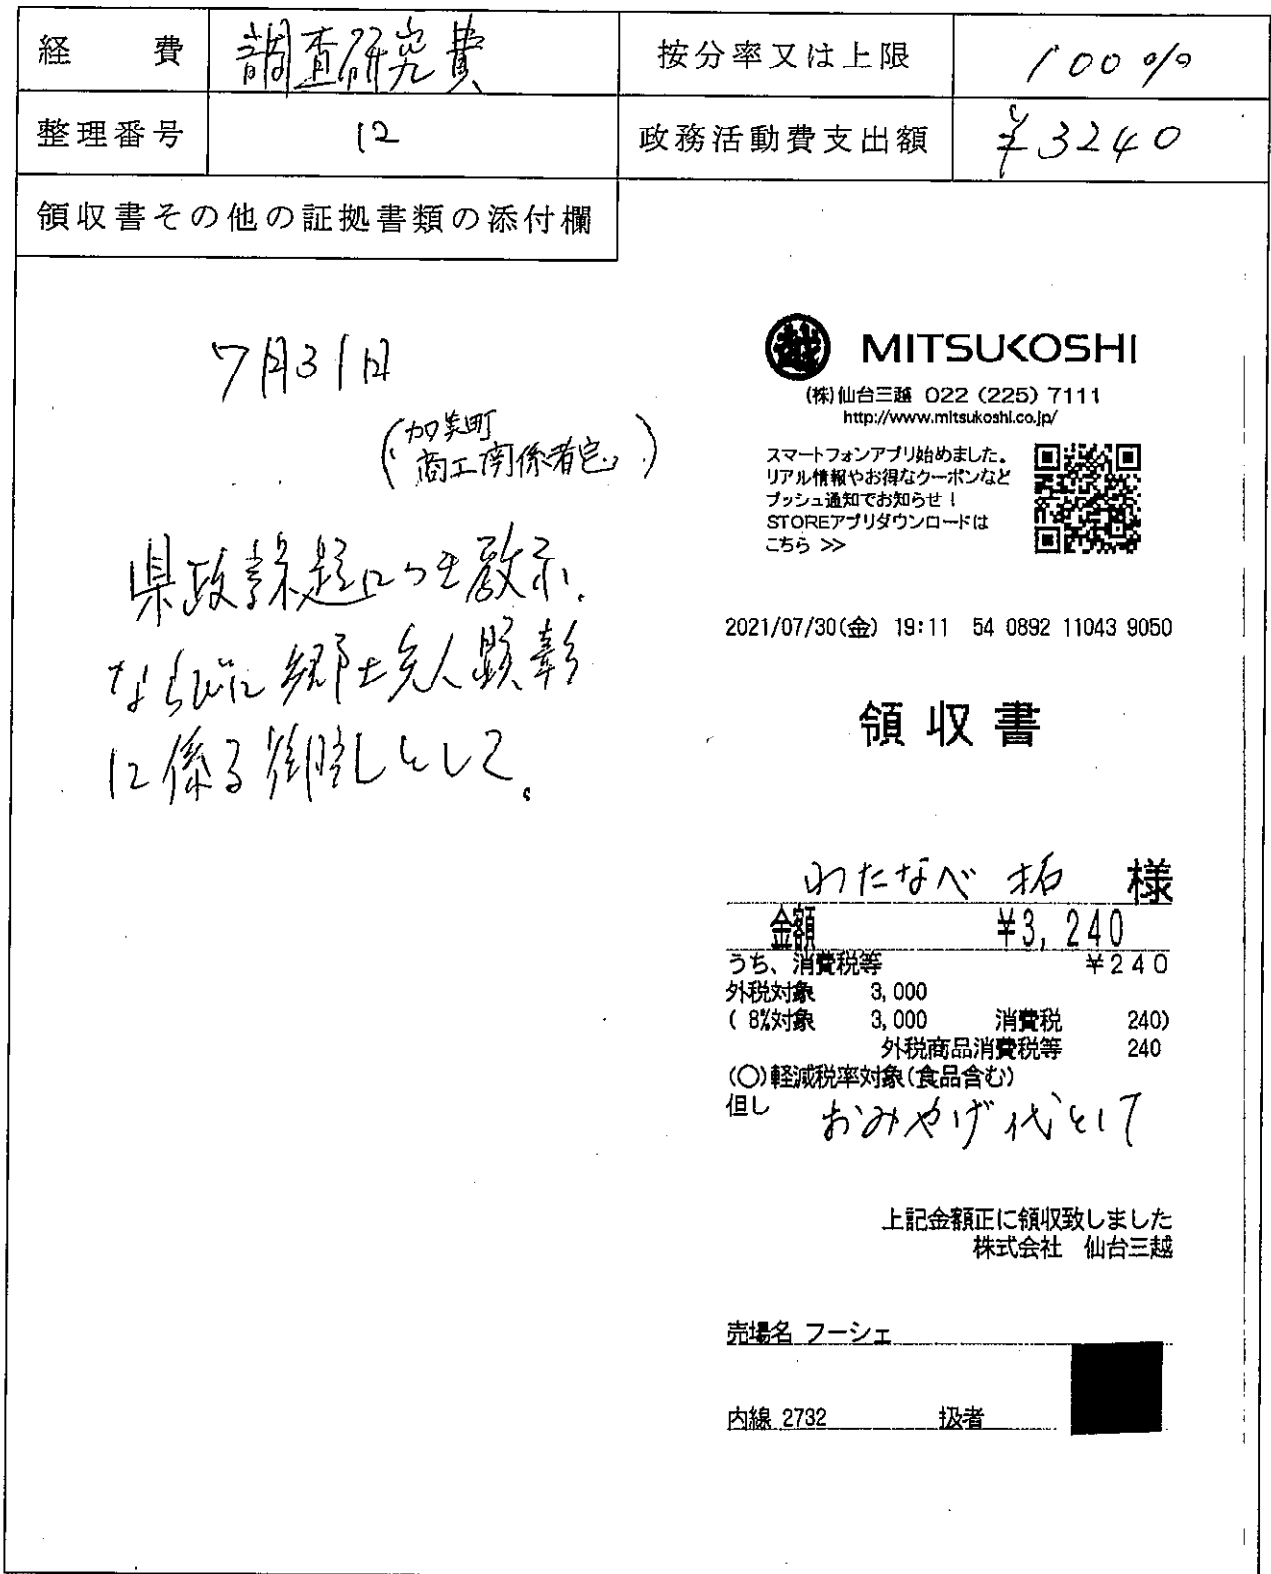 経 費 調査研究費 按分率又は上限 100%
整理番号 12 政務活動費支出額 ¥3240
領収書その他の証拠書類の添付欄
7月31日
(加美町
商工関係者宅)
県政課題につき教示、
ならびに郷土先人顕彰
に係る御礼として。
越 MITSUKOSHI
(株)仙台三越 022 (225) 7111
http://www.mitsukoshi.co.jp/
スマートフォンアプリ始めました。
リアル情報やお得なクーポンなど
プッシュ通知でお知らせ!
STOREアプリダウンロードは
こちら >>
2021/07/30(金) 19:11 54 0892 11043 9050
領収書
わたなべ 拓 様
金額 ¥3,240
うち、消費税等 ¥240
外税対象 3,000
( 8%対象 3,000 消費税 240)
外税商品消費税等 240
(○)軽減税率対象(食品含む)
但し おみやげ代として
上記金額正に領収致しました
株式会社 仙台三越
売場名 フーシェ
内線 2732 扱者